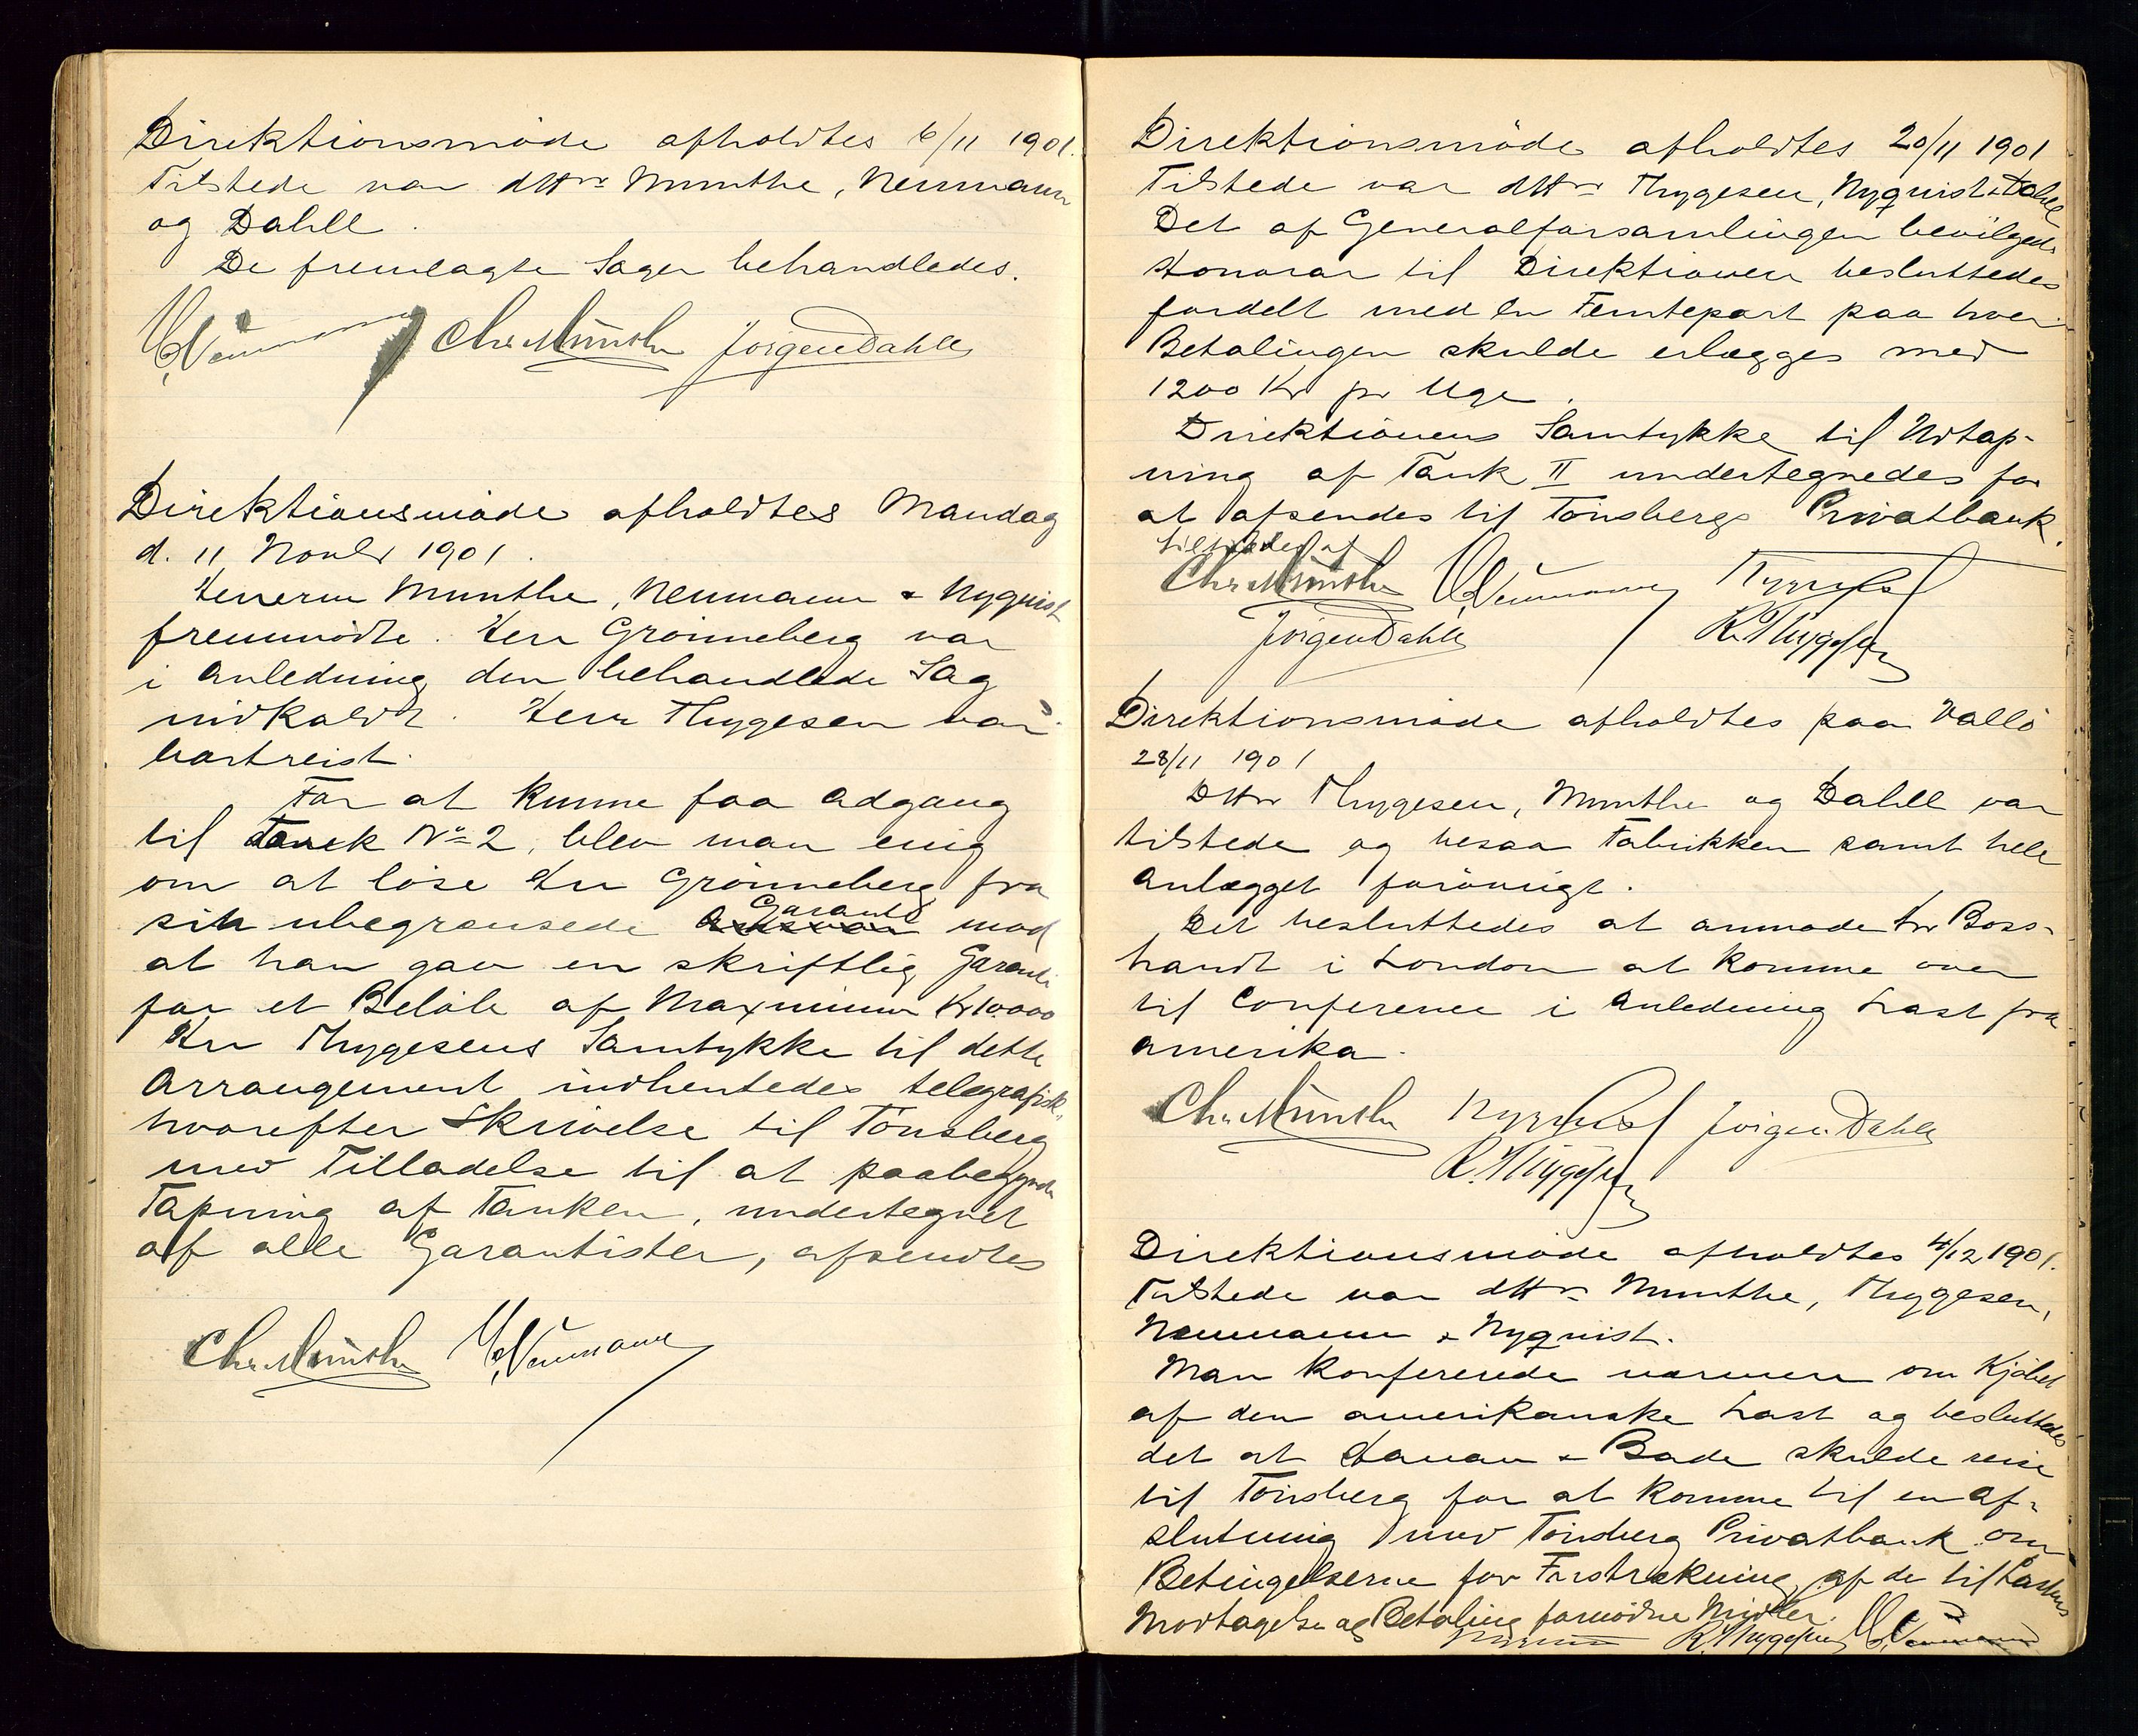 Direktionsmöde afholdtes 6/11 1901.
Tilstede var dHrr Munthe, Neumann
og Dahll.
De fremlagte Sager behandledes.
Neumann Chr. Munthe Jörgen Dahll
Direktionsmöde afholdtes Mandag
d. 11 Novbr 1901.
Herrerne Munthe, Neumann & Nyquist
fremmödte. Herr Grönneberg var
i Anledning den behandlede Sag
indkaldt. Herr Thygesen var
bortreist.
For at kunne faa Adgang
til Tank No 2, blev man enig
om at löse Hr Grönneberg fra
sin ubegrænsede Garanti mod
at han gav en skriftlig Garanti
for et Belöb af Maximum Kr 10000
Hr Thygesens Samtykke til dette
Arrangement indhentedes telegrafisk,
hvorefter Skrivelse til Tönsberg
med Tilladelse til at paabegynde
Tapning af Tanken, undertegnet
af alle Garantister, afsendtes
Chr. Munthe Neumann
Direktionsmöde afholdtes 20/11 1901
Tilstede var dHrr Thygesen, Nyquist & Dahll
Det af Generalforsamlingen bevilgede
Honorar til Direktionen besluttedes
fordelt med en Femtepart paa hver.
Betalingen skulde erlægges med
1200 Kr pr Uge.
Direktionens Samtykke til Udtap-
ning af Tank II undertegnedes for
at afsendes til Tönsbergs Privatbank.
tiltrædes af
Chr. Munthe Neumann Nyquist
Jörgen Dahll R. Thygesen
Direktionsmöde afholdtes paa Vallö
28/11 1901
DHrr Thygesen, Munthe og Dahll var
tilstede og besaa Fabrikken samt hele
Anlægget forövrigt.
Det besluttedes at anmode Hr Boss-
hardt i London at komme over
til Conference i Anledning Last fra
Amerika.
Chr. Munthe Nyquist Jörgen Dahll
R. Thygesen
Direktionsmöde afholdtes 4/12 1901.
Tilstede var dHrr Munthe, Thygesen,
Neumann & Nyquist.
Man konfererede nærmere om Kjöbet
af den amerikanske Last og besluttedes
det at & Bade skulde reise
til Tönsberg for at komme til en Af-
slutning med Tönsberg Privatbank om
Betingelserne for Forstrækning af de til Lastens
Modtagelse og Betaling fornödne Midler.
Nyquist R. Thygesen Neumann